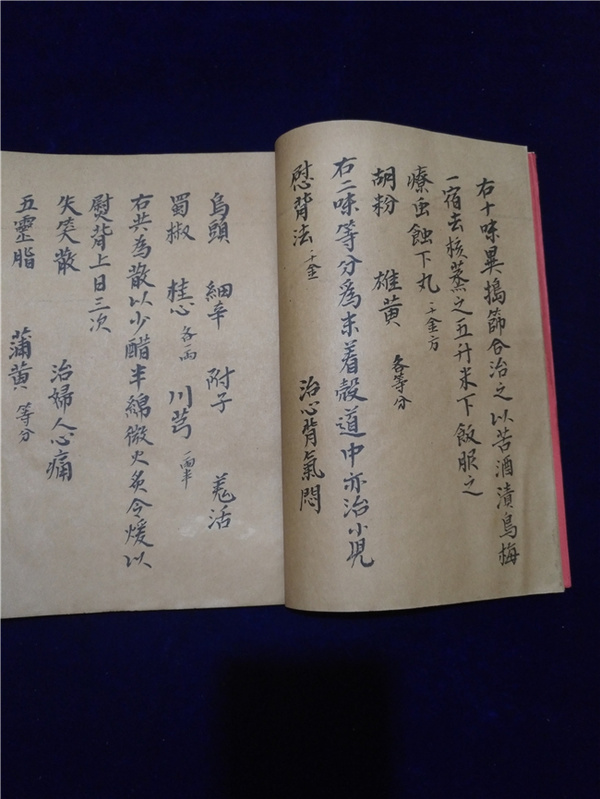 右十味異搗篩合治之以苦酒漬烏梅
一宿去核蒸之五升米下飯服之
療虫蝕下丸 千金方
胡粉 雄黃 各等分
右二味等分為末着殼道中亦治小兒
慰背法 千金 治心背氣悶
烏頭 細辛 附子 羗活
蜀椒 桂心 各一両 川芎 一両半
右共為散以少醋半綿微火炙令煖以
熨背上日三次
失笑散 治婦人心痛
五靈脂 蒲黃 等分